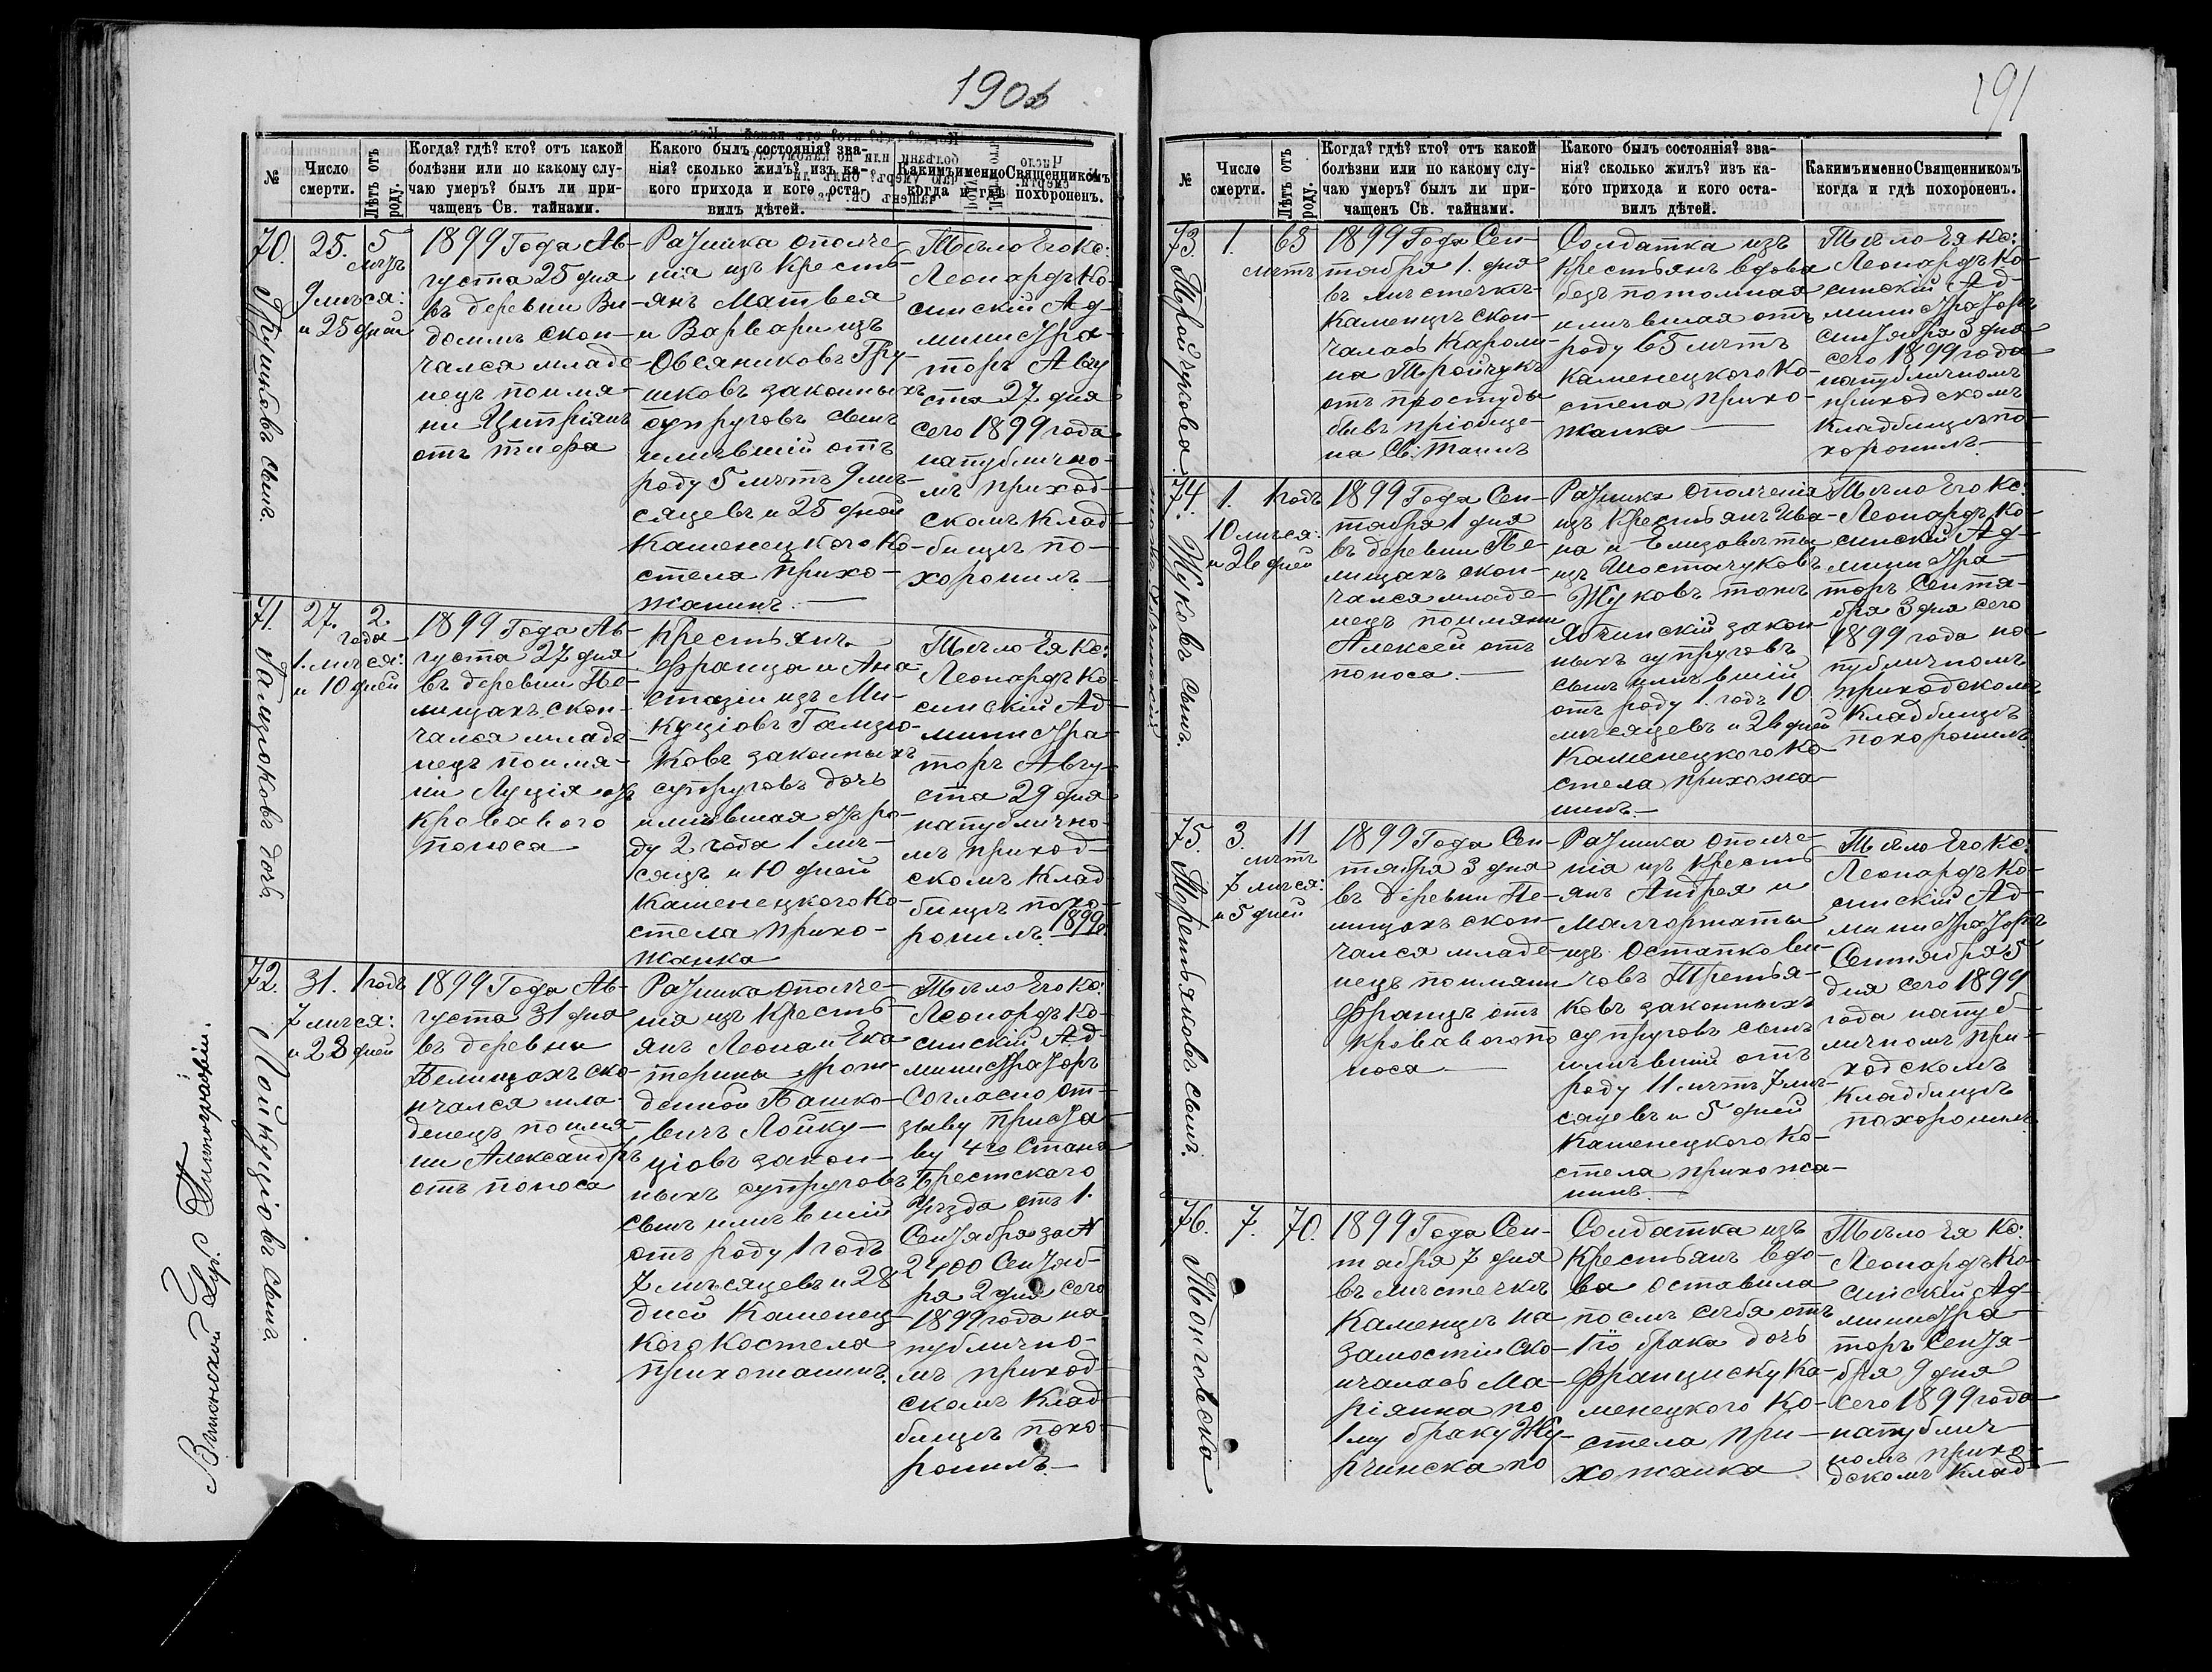 190об
№
Число
смерти.
Лѣтъ отъ
роду.
Когда? гдѣ? кто? отъ какой
болѣзни или по какому слу-
чаю умеръ? былъ ли при-
чащенъ Св. тайнами.
Какого былъ состоянія? зва-
нія? сколько жилъ? изъ ка-
кого прихода и кого оста-
вилъ дѣтей.
Какимъ именно Священникомъ
когда и гдѣ похороненъ.
70.
Грушковъ сынъ.
25.
5
9 мѣся:
и 25 дней
1899 Года Ав-
густа 25 дня
въ деревни Ви-
домлѣ скон-
чался младе-
нецъ поимя-
ни Ципріянъ
отъ тифа
Ратника ополче-
нія изъ Кресть-
янъ Матвея
и Варвары изъ
Овсяниковъ Гру-
шковъ законныхъ
супруговъ сынъ
имѣвшій отъ
роду 5 лѣтъ 9 мѣ-
сяцевъ и 25 дней
Каменецкого Ко-
стела прихо-
жанинъ.
Тѣло Его Кс:
Леонардъ Ко-
синскій Ад-
министра-
торъ Авгу
ста 27 дня
сего 1899 года
напублично-
мъ приход-
скомъ Клад-
бищѣ по-
хоронилъ
71.
Гамзюковъ дочь
27.
2.
года
1. мѣся:
и 10 дней
1899 Года Ав-
густа 27 дня
въ деревни Пе-
лищахъ скон-
чался младе-
нецъ поимя-
ни Луція отъ
кроваваго
поноса
Крестьянъ
Франца и Ана-
стазіи изъ Ми-
куціовъ Гамзю-
ковъ законныхъ
супруговъ дочь
имѣвшая отъ ро-
ду 2 года 1 мѣ-
сяцъ и 10 дней
Каменецкого Ко-
стела прихо-
жанка
Тѣло Ея Кс:
Леонардъ Ко-
синскій Ад-
министра-
торъ Авгу-
ста 29 дня
напублично-
мъ приход-
скомъ Клад-
бищѣ похо-
ронилъ. 1899г.
72.
Лойкуціовъ сынъ.
31.
1 годъ
7 мѣся:
и 28 дней
1899 Года Ав-
густа 31 дня
въ деревни
Пелищахъ ско-
нчался мла-
денецъ поимя-
ни Александръ
отъ поноса
Ратника ополче-
нія изъ Кресть-
янъ Леона и Ека
терины урож-
денной Пашке-
вичъ Лойку-
ціовъ закон-
ныхъ супруговъ
сынъ имѣвшій
отъ роду 1 годъ
7 мѣсяцевъ и 28
дней Каменец-
кого Костела
прихожанинъ.
Тѣло Его Кс:
Леонардъ Ко-
синскій Ад-
министраторъ
Согласно от-
зыву Приста
ву 4го Стана
Брестскаго
Уѣзда отъ 1.
Сентября за №
2400 Сентяб-
ря 2 дня сего
1899 года на
публично-
мъ приход-
скомъ Клад-
бищѣ похо-
ронилъ.
Виленской Губ. Типографіи.
191
№
Число
смерти.
Лѣтъ отъ
роду.
Когда? гдѣ? кто? отъ какой
болѣзни или по какому слу-
чаю умеръ? былъ ли при-
чащенъ Св. тайнами.
Какого былъ состоянія? зва-
нія? сколько жилъ? изъ ка-
кого прихода и кого оста-
вилъ дѣтей.
Какимъ именно Священникомъ
когда и гдѣ похороненъ.
73.
Тройчукова.
1.
65
лѣтъ
1899 Года Сен-
тября 1. дня
въ мѣстечкѣ
Каменцѣ скон-
чалась Кароли-
на Тройчукъ
отъ простуды
бывъ пріобще-
на Св: Таинъ
Солдатка изъ
Крестьянъ вдова
безъ потомная
имѣвшая отъ
роду 65 лѣтъ
Каменецкого Ко-
стела прихо-
жанка
Тѣло Ея Кс:
Леонардъ Ко-
синскій Ад-
министраторъ
сентября 3 дня
сего 1899 года
напубличномъ
приходскомъ
Кладбищѣ по-
хоронилъ.
74.
Жуковъ сынъ.
1.
1 годъ
10 мѣся:
и 26 дней
1899 Года Сен-
тября 1 дня
въ деревни Пе-
лищахъ скон-
чался младе-
нецъ поимяни
Алексей отъ
поноса.
Ратника Ополченія
изъ Крестьянъ Ива-
на и Елизаветы
изъ Шостачуковъ
Жуковъ тожъ
закон
ныхъ супруговъ
сынъ имѣвшій
отъ роду 1. годъ 10
мѣсяцевъ и 26 дней
Каменецкого Ко-
стела прихожа-
нинъ.
Тѣло Его Кс:
Леонардъ Ко-
синскій Ад-
министра-
торъ Сентя-
бря 3 дня сего
1899 года на
публичномъ
приходскомъ
Кладбищѣ
похоронилъ.
75.
Третьяковъ сынъ.
3.
11
лѣтъ
7 мѣся:
и 5 дней
1899 Года Сен-
тября 3 дня
въ деревни Пе-
лищахъ скон-
чался младе-
нецъ поимяни
Францъ отъ
кроваваго по
носа
Ратника ополче-
нія изъ Кресть-
янъ Андрея и
Малгоржаты
изъ Остапкови-
човъ Третья-
ковъ законныхъ
супруговъ сынъ
имѣвшій отъ
роду 11 лѣтъ 7 мѣ-
сяцевъ и 5 дней
Каменецкого Ко-
стела прихожа-
нинъ.
Тѣло Его Кс:
Леонардъ Ко-
синскій Ад-
министраторъ
Сентября 5
дня сего 1899
года напуб-
личномъ при-
ходскомъ
Кладбищѣ
похоронилъ.
76.
7.
70.
1899 Года Сен-
тября 7 дня
въ мѣстечкѣ
Каменцѣ на
замостіи ско-
нчалась Ма-
ріянна по
1му браку
по
Солдатка изъ
Крестьянъ вдо-
ва оставила
послѣ себя отъ
1го брака дочь
Франциску Ка-
менецкого Ко-
стела при-
хожанка
Тѣло Ея Кс:
Леонардъ Ко-
синскій Ад-
министра-
торъ Сентя-
бря 9 дня
сего 1899 года
напублич-
номъ прихо-
дскомъ Клад-